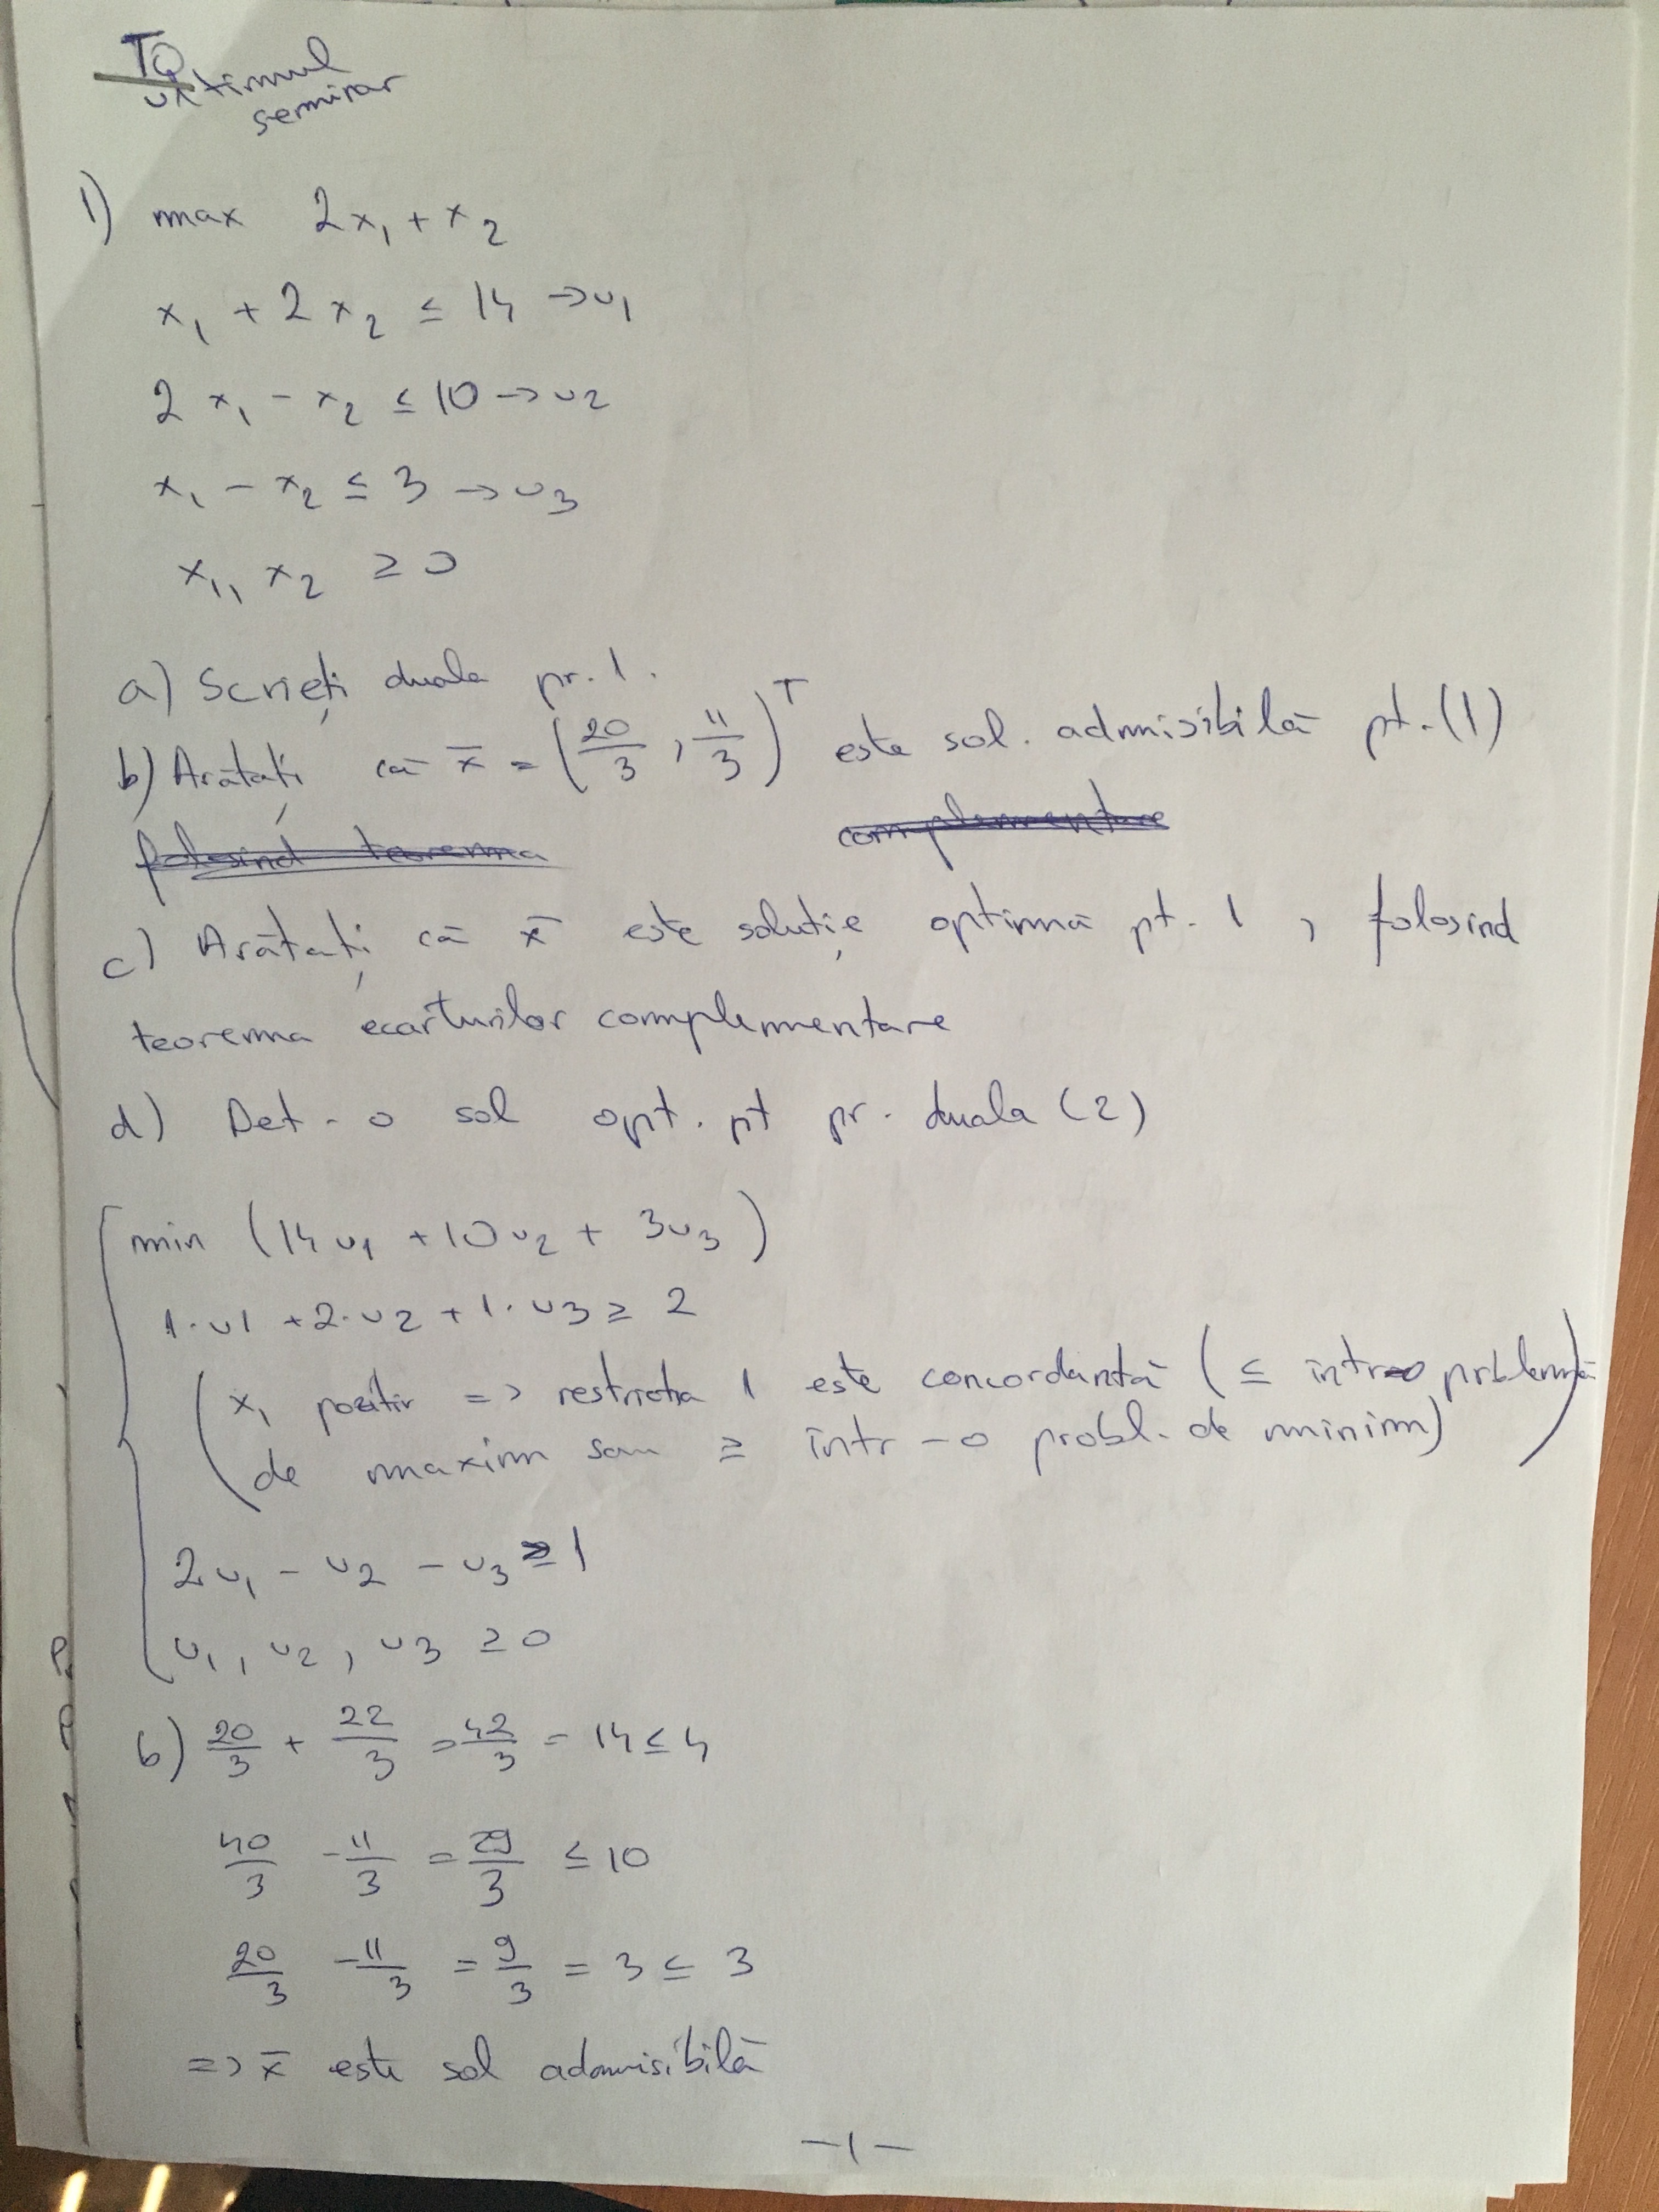 TQ
ultimul
seminar
1) max 2x₁ + x₂
x₁ + 2x₂ ≤ 14 → u₁
2x₁ - x₂ ≤ 10 → u₂
x₁ - x₂ ≤ 3 → u₃
x₁, x₂ ≥ 0
a) Scrieți duala pr. 1.
b) Arătați că x̄ = (20/3, 11/3)ᵀ este sol. admisibilă pt. (1)
folosind teorema complementare
c) Arătați că x̄ este soluție optimă pt. 1, folosind
teorema ecarturilor complementare
d) Det. o sol opt. pt pr. duala (2)
min (14u₁ + 10u₂ + 3u₃)
1·u1 + 2·u2 + 1·u3 ≥ 2
(x₁ pozitiv => restrictia 1 este concordantă (≤ într-o problemă
de maxim sau ≥ într-o probl. de minim))
2u₁ - u₂ - u₃ ≥ 1
u₁, u₂, u₃ ≥ 0
b) 20/3 + 22/3 = 42/3 = 14 ≤ 4
40/3 - 11/3 = 29/3 ≤ 10
20/3 - 11/3 = 9/3 = 3 ≤ 3
=> x̄ este sol admisibilă
-1-